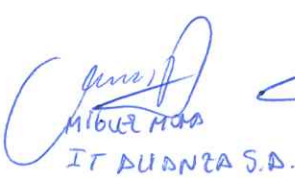 MIGUEL MORA
IT ALIANZA S.A.